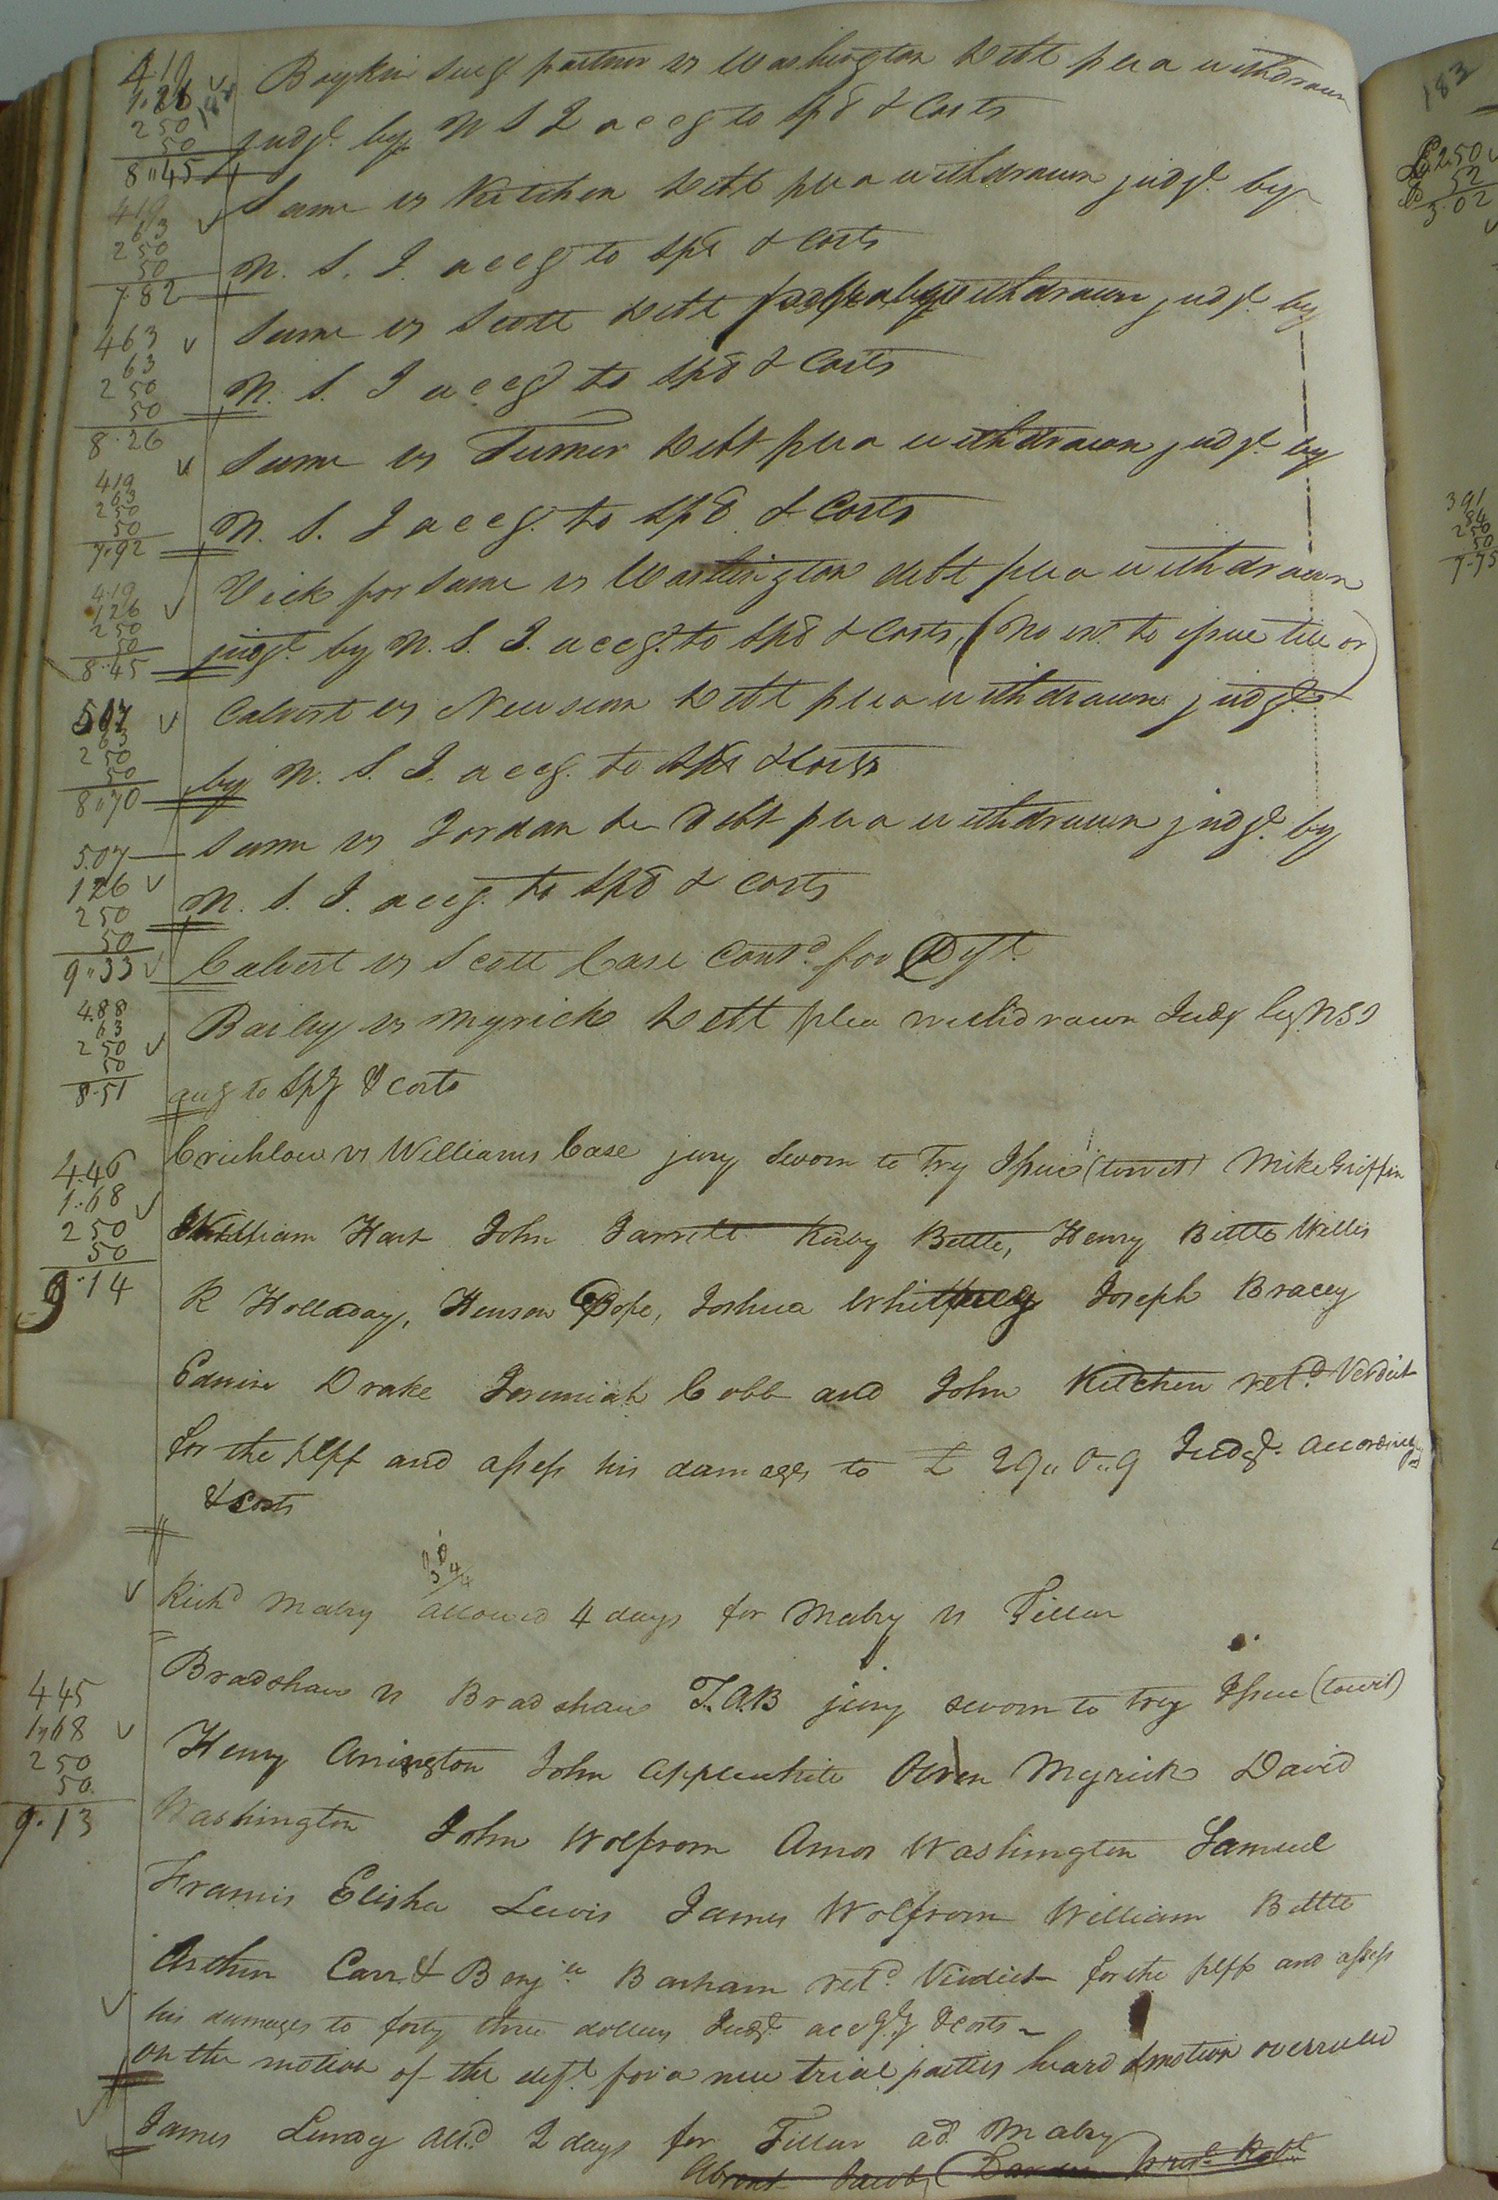 419
1.26
250
50
8"45
Boykin surg partner vs Washington Debt plea withdrawn
judgt. by N S I accg to spe & Costs
419
63
250
50
7.82
Same vs Kitchen Debt plea withdrawn judgt. by
N. S. I. accg to spe & Costs
463
63
250
50
8.26
Same vs Scott Debt withdrawn judgt. by
N. S. I accg to spe & Costs
419
63
250
50
7.92
Same vs Turner Debt plea withdrawn judgt. by
N. S. I accg. to spe & Costs
419
126
250
50
8.45
Vick for Same vs Washington debt plea withdrawn
judgt. by N. S. I. accg. to spe & Costs, (No to issue till or)
507
63
250
50
8"70
Calvert vs Newsum Debt plea withdrawn judgt.
by N. S. I. accg. to spe & Costs
5.07
126
250
50
9"33
Same vs Jordan Debt plea withdrawn judgt. by
N. S. I. accg. to spe & Costs
Calvert vs Scott Case Contd. for Deft.
4.88
63
250
50
8.51
Bailey vs Myrick Debt plea withdrawn Judgt by NSI
accg to spe & costs
4.46
1.68
250
50
9.14
Crichlow vs Williams Case jury sworn to try Issue (towit) Mike Griffin
William Hart John Jarrett Kirby Bittle, Henry Bittle Willis
R Holladay, Henson Pope, Joshua Joseph Bracey
Edwin Drake Jeremiah Cobb and John Kitchen retd. Verdict
for the plff and assess his damages to £ 29" 0"9 Judgt. according
& Costs
Richd Mabry allowed 4 days for Mabry vs Fillur
445
1.68
250
50.
9.13
Bradshaw vs Bradshaw T.A.B jury sworn to try Issue (towit)
Henry Arrington John Applewhite Myrick David
Washington John Wolfrom Amos Washington Samuel
Francis Elisha Lewis James Wolfrom William Bittle
Arthur Carr & Benja. Barham retd. Verdict for the plff and assess
his damages to forty three dollars Judgt. accgly & costs
on the motion of the deft. for a new trial parties heard & motion overruled
James Lundy alld. 2 days for Fillur ad. Mabry
183
2.50
52
3.02
391
84
250
50
7.75